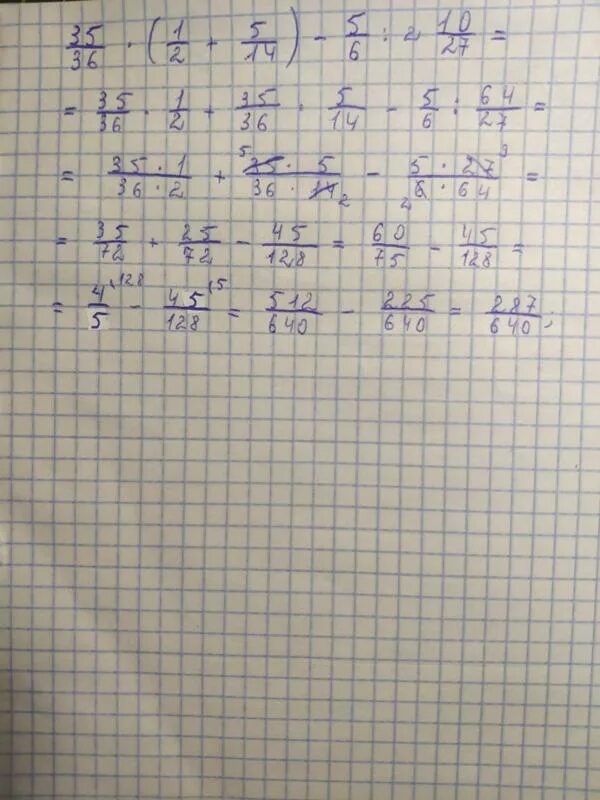 35/36 · (1/2 + 5/14) - 5/6 : 2 10/27 =
= 35/36 · 1/2 + 35/36 · 5/14 - 5/6 : 64/27 =
= 35 · 1/36 · 2 + 5 35 · 5/36 · 14 2 - 5 · 27 9/2 6 · 64 =
= 35/72 + 25/72 - 45/128 = 60/75 - 45/128 =
= 4/5 \128 - 45/128 \5 = 512/640 - 225/640 = 287/640;